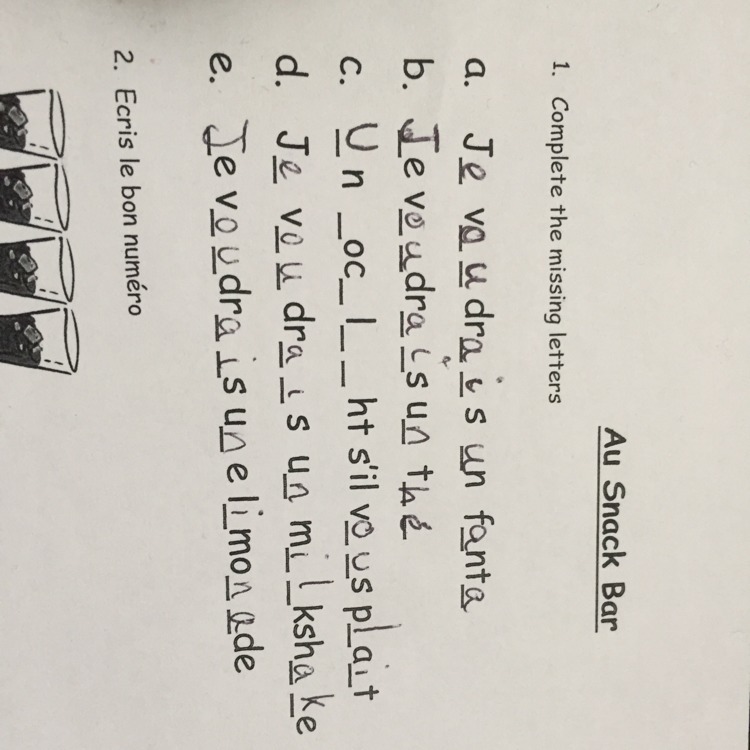 Au Snack Bar
1. Complete the missing letters
a. Je voudrais un fanta
b. Je voudrais un thé
c. Un _oc_l__ht s'il vous plait
d. Je voudrais un milkshake
e. Je voudrais une limonade
2. Ecris le bon numéro